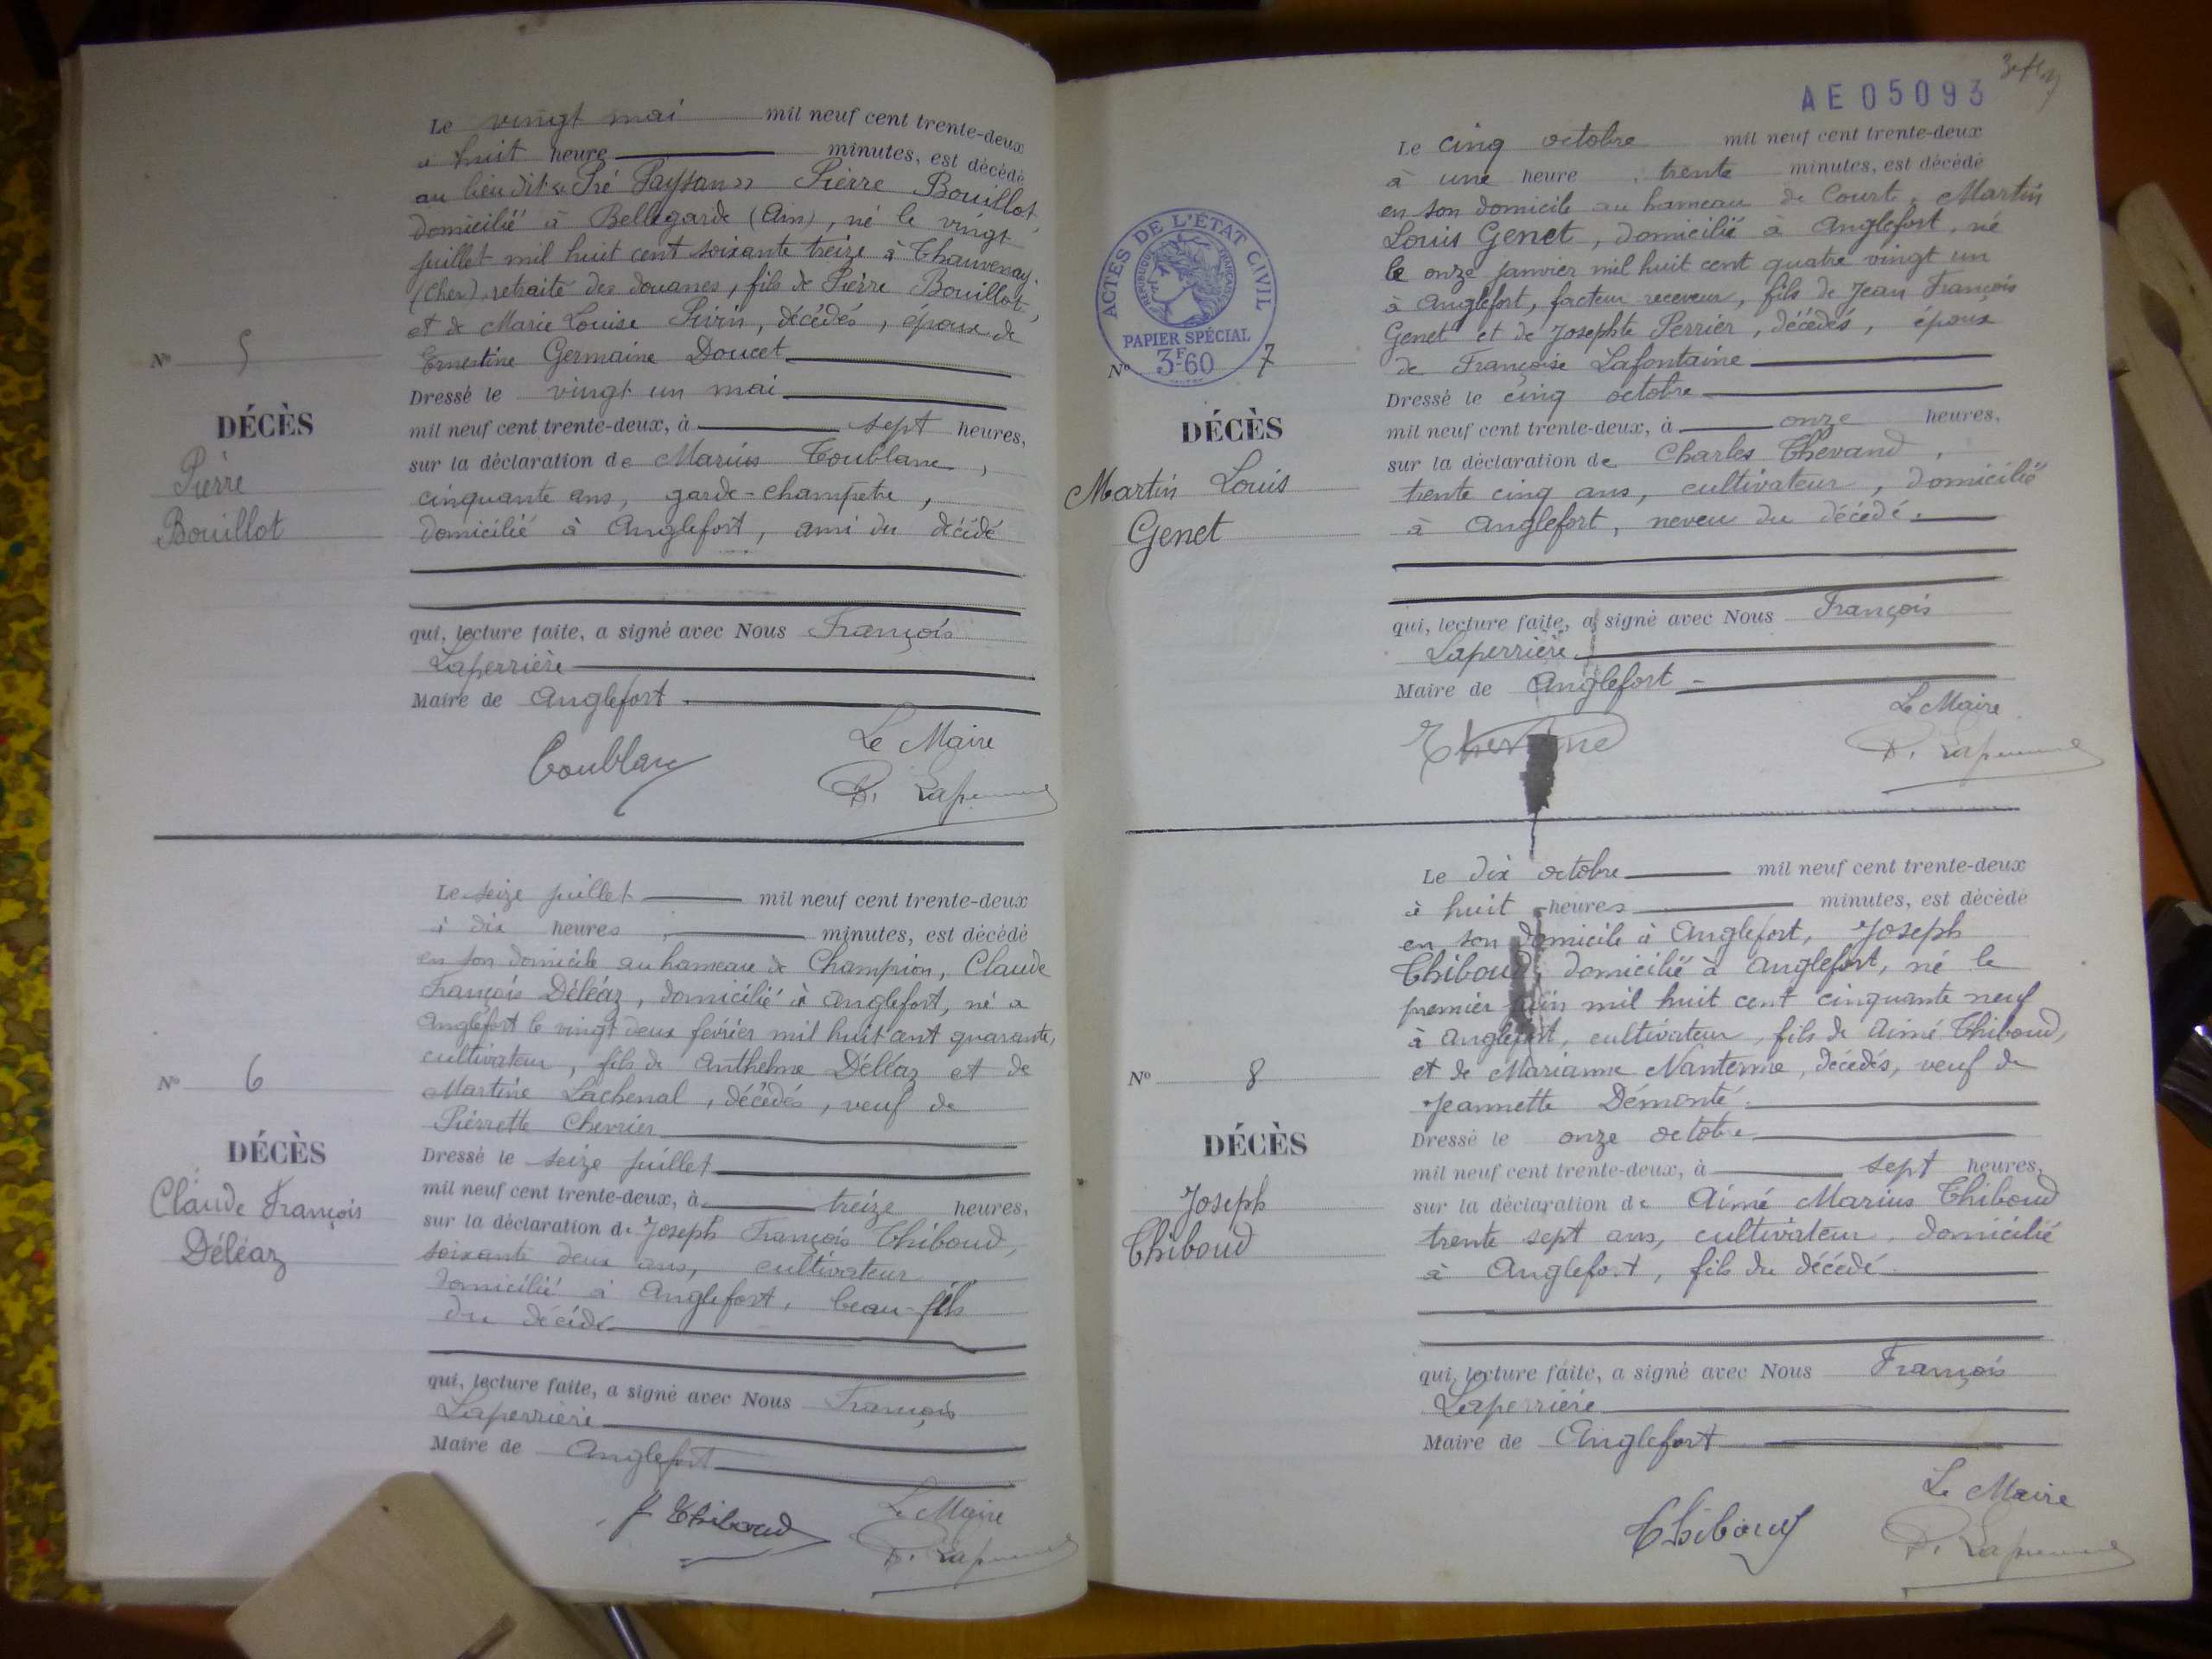 Le vingt mai mil neuf cent trente-deux
à huit heure minutes, est décédé
au lieu dit « Pré Paysan » Pierre Bouillot,
domicilié à Bellegarde (Ain), né le vingt
juillet mil huit cent soixante treize à Thauvenay
(Cher) retraité des douanes, fils de Pierre Bouillot,
et de Marie Louise Pivin, décédés, époux de
Ernestine Germaine Doucet
Dressé le vingt un mai
mil neuf cent trente-deux, à sept heures,
sur la déclaration de Marius Coublanc,
cinquante ans, garde-champêtre,
domicilié à Anglefort, ami du décédé
qui, lecture faite, a signé avec Nous François
Laperrière
Maire de Anglefort
Coublanc
Le Maire
Nº 5
DÉCÈS
Pierre
Bouillot
Le seize juillet mil neuf cent trente-deux
à dix heures minutes, est décédé
en son domicile au hameau de Champrion, Claude
François Déléaz, domicilié à Anglefort, né à
Anglefort le vingt deux février mil huit cent quarante,
cultivateur, fils de Anthelme Déléaz et de
Martine Lachenal, décédés, veuf de
Pierrette Chevrier
Dressé le seize juillet
mil neuf cent trente-deux, à treize heures,
sur la déclaration de Joseph François Thiboud,
soixante deux ans, cultivateur
domicilié à Anglefort, beau-fils
du décédé
qui, lecture faite, a signé avec Nous François
Laperrière
Maire de Anglefort
J Thiboud
Le Maire
Nº 6
DÉCÈS
Claude François
Déléaz
AE05093
Le cinq octobre mil neuf cent trente-deux
à une heure trente minutes, est décédé
en son domicile au hameau de Court, Martin
Louis Genet, domicilié à Anglefort, né
le onze janvier mil huit cent quatre vingt un
à Anglefort, facteur receveur, fils de Jean François
Genet et de Josephte Perrier, décédés, époux
de Françoise Lafontaine
Dressé le cinq octobre
mil neuf cent trente-deux, à onze heures,
sur la déclaration de Charles Thevand,
trente cinq ans, cultivateur, domicilié
à Anglefort, neveu du décédé.
qui, lecture faite, a signé avec Nous François
Laperrière
Maire de Anglefort
Le Maire
ACTES DE L'ÉTAT CIVIL
RÉPUBLIQUE FRANÇAISE
PAPIER SPÉCIAL
3F60
Nº 7
DÉCÈS
Martin Louis
Genet
Le dix octobre mil neuf cent trente-deux
à huit heures minutes, est décédé
en son domicile à Anglefort, Joseph
Thiboud, domicilié à Anglefort, né le
premier juin mil huit cent cinquante neuf
à Anglefort, cultivateur, fils de Aimé Thiboud,
et de Marianne Nanterme, décédés, veuf de
Jeannette Démonté.
Dressé le onze octobre
mil neuf cent trente-deux, à sept heures,
sur la déclaration de Aimé Marius Thiboud
trente sept ans, cultivateur, domicilié
à Anglefort, fils du décédé
qui, lecture faite, a signé avec Nous François
Laperrière
Maire de Anglefort
Thiboud
Le Maire
Nº 8
DÉCÈS
Joseph
Thiboud